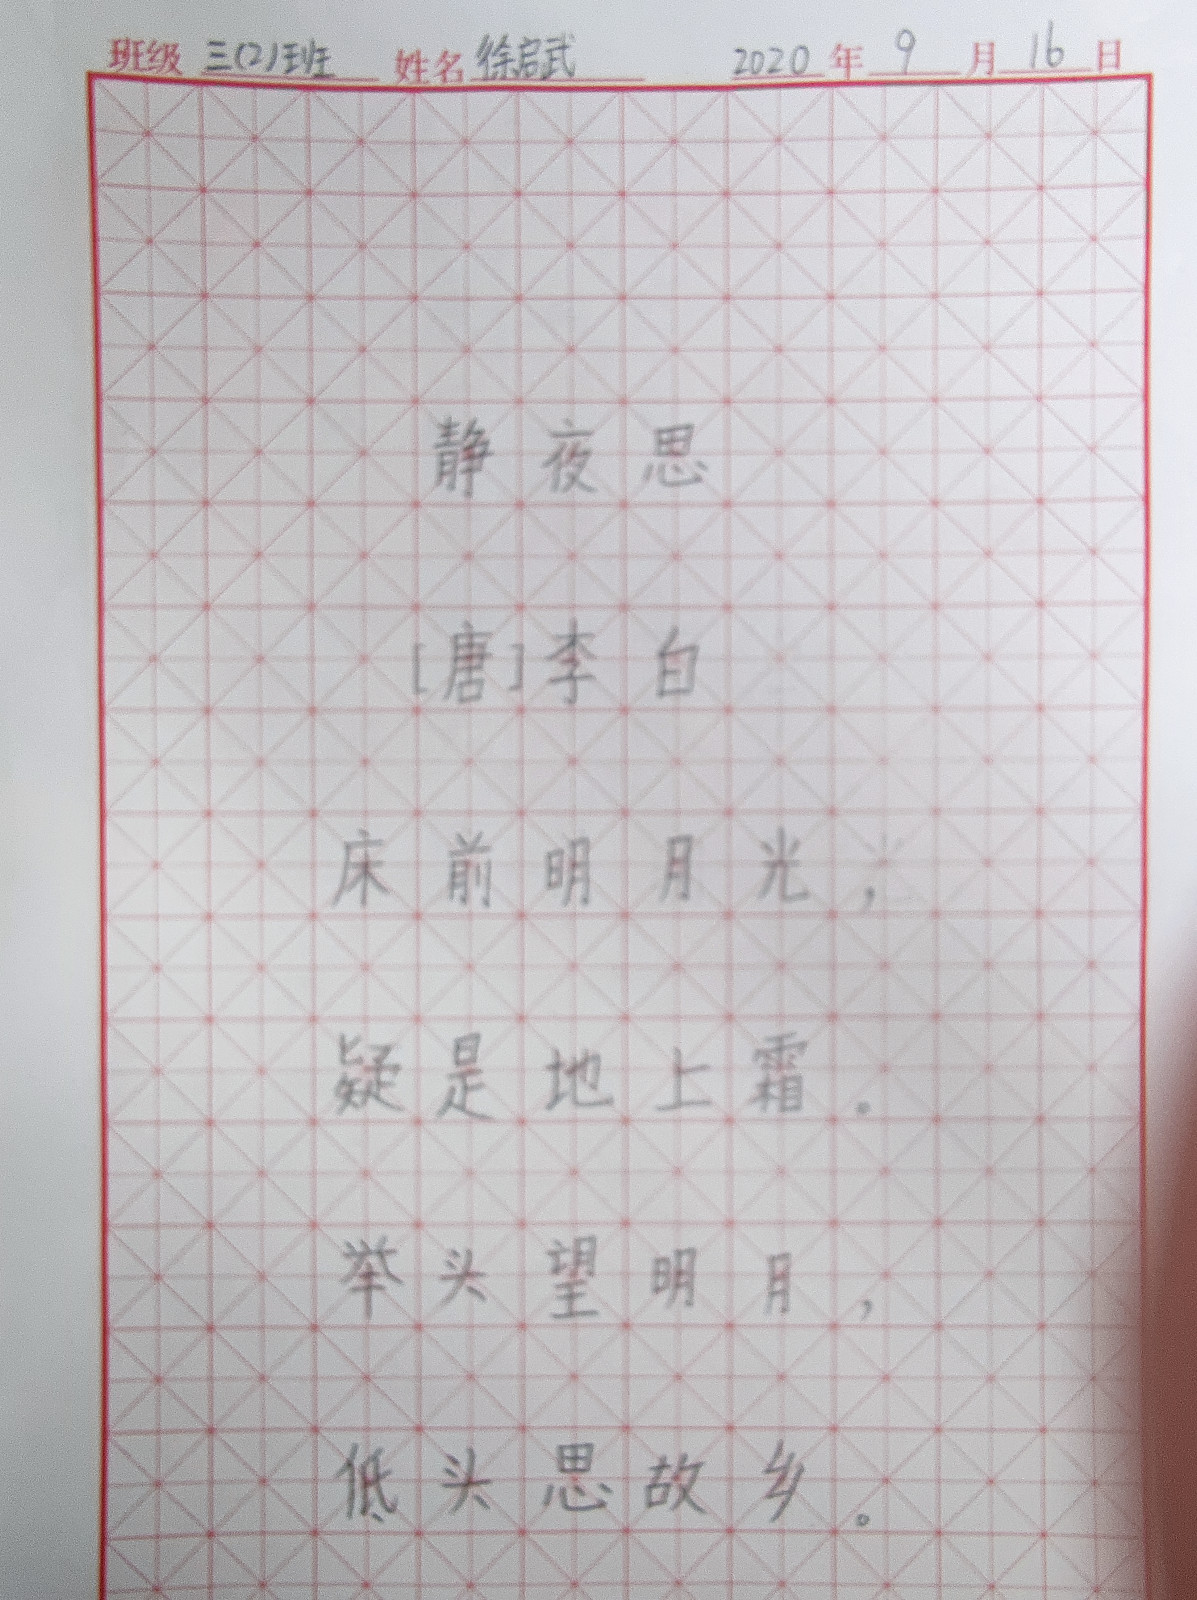 班级 三(2)班 姓名 徐启武 2020 年 9 月 16 日
静夜思
[唐]李白
床前明月光，
疑是地上霜。
举头望明月，
低头思故乡。